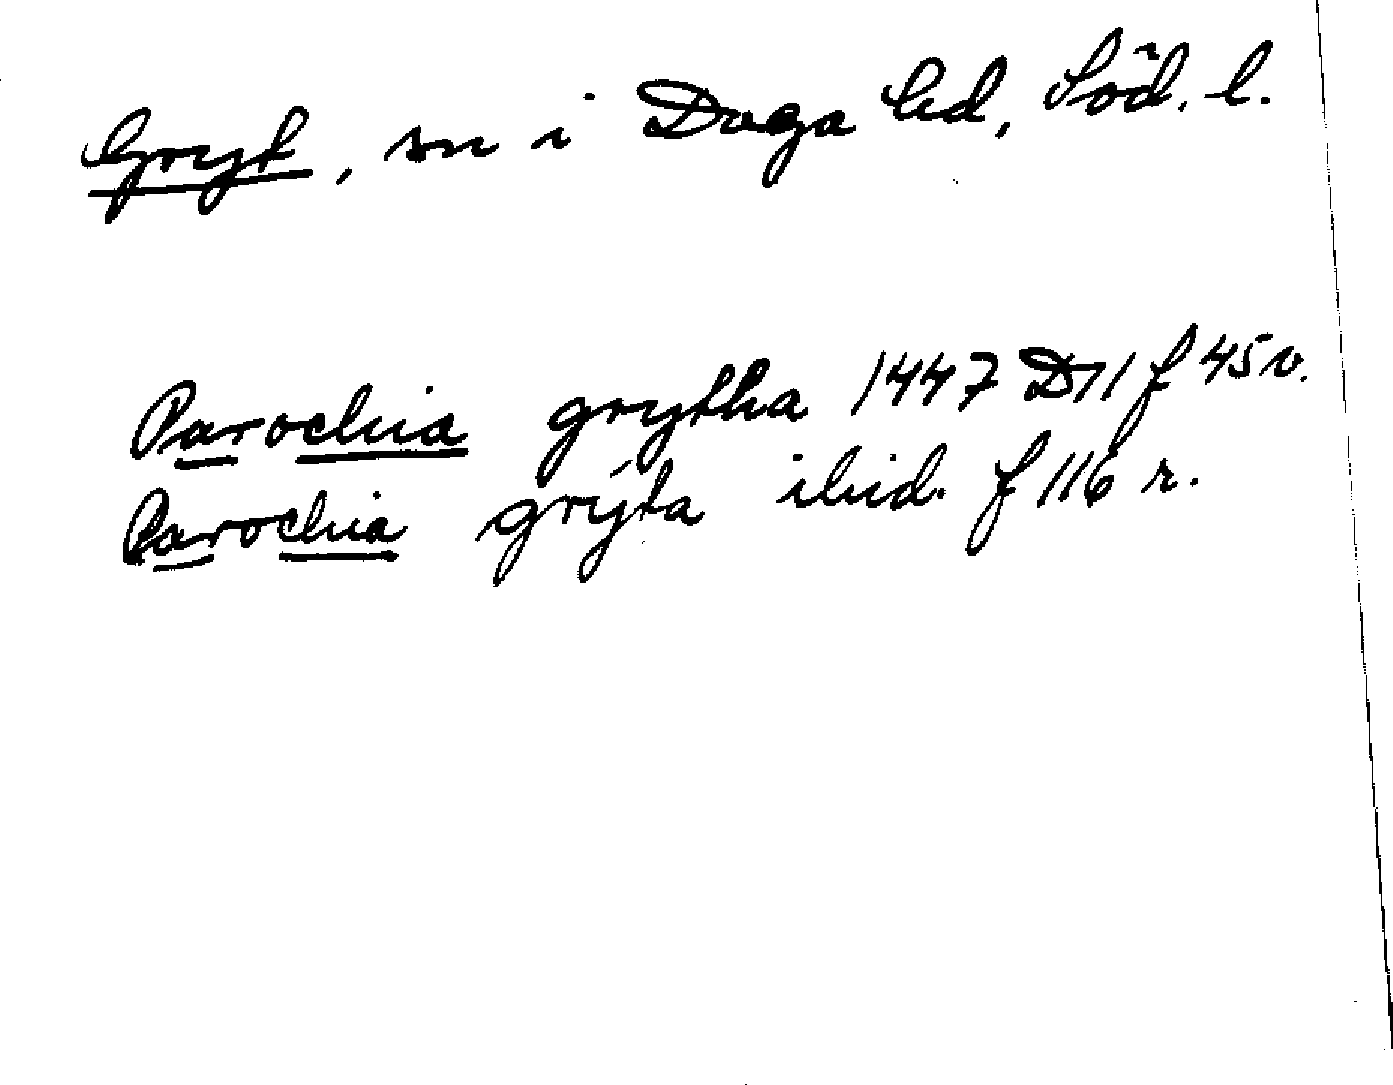 Gryt, sn i Daga hd, Söd. l.
Parochia grytha 1447 D11 f 45 v.
Parochia grýta ibid. f 116 r.